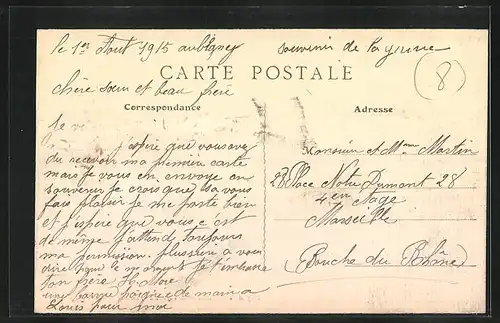 le 1er Aout 1915 aubigney
souvenir de la guerre
(8)
CARTE POSTALE
chère sœur et beau frère
Correspondance
Adresse
Je
j'aspère que vous avez
du recevoir ma première carte
mais Je vous en envoye en
souvenir Je crois que sa vous
fais plaisir Je me porte bien
et J'espère que vous c'est
de même J'attend toujours
ma permission. a vous
dire que le moment Je
ton frère
une bonne poignée de main a
Louis pour moi
Monsieur et Mme Martin
28 Place Notre Dumont 28
4 em etage
Marseille
(Bouche du Rhône)